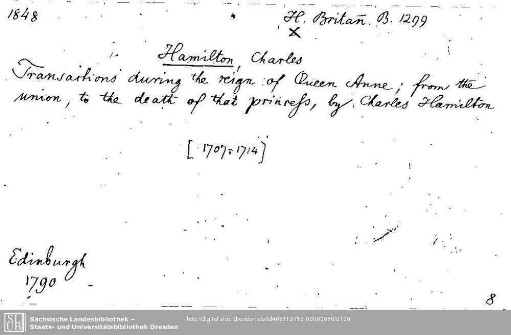 1848
H. Britan. B. 1299
Hamilton, Charles
Transactions during the reign of Queen Anne; from the
union, to the death of that princess, by Charles Hamilton
[1707-1714]
Edinburgh
1790
8
SLUB
Sächsische Landesbibliothek –
Staats- und Universitätsbibliothek Dresden